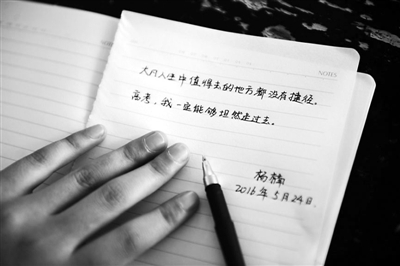 NOTES
大凡人生中值得去的地方都没有捷径.
高考,我一定能够坦然走过去.
杨楠
2016年5月24日.